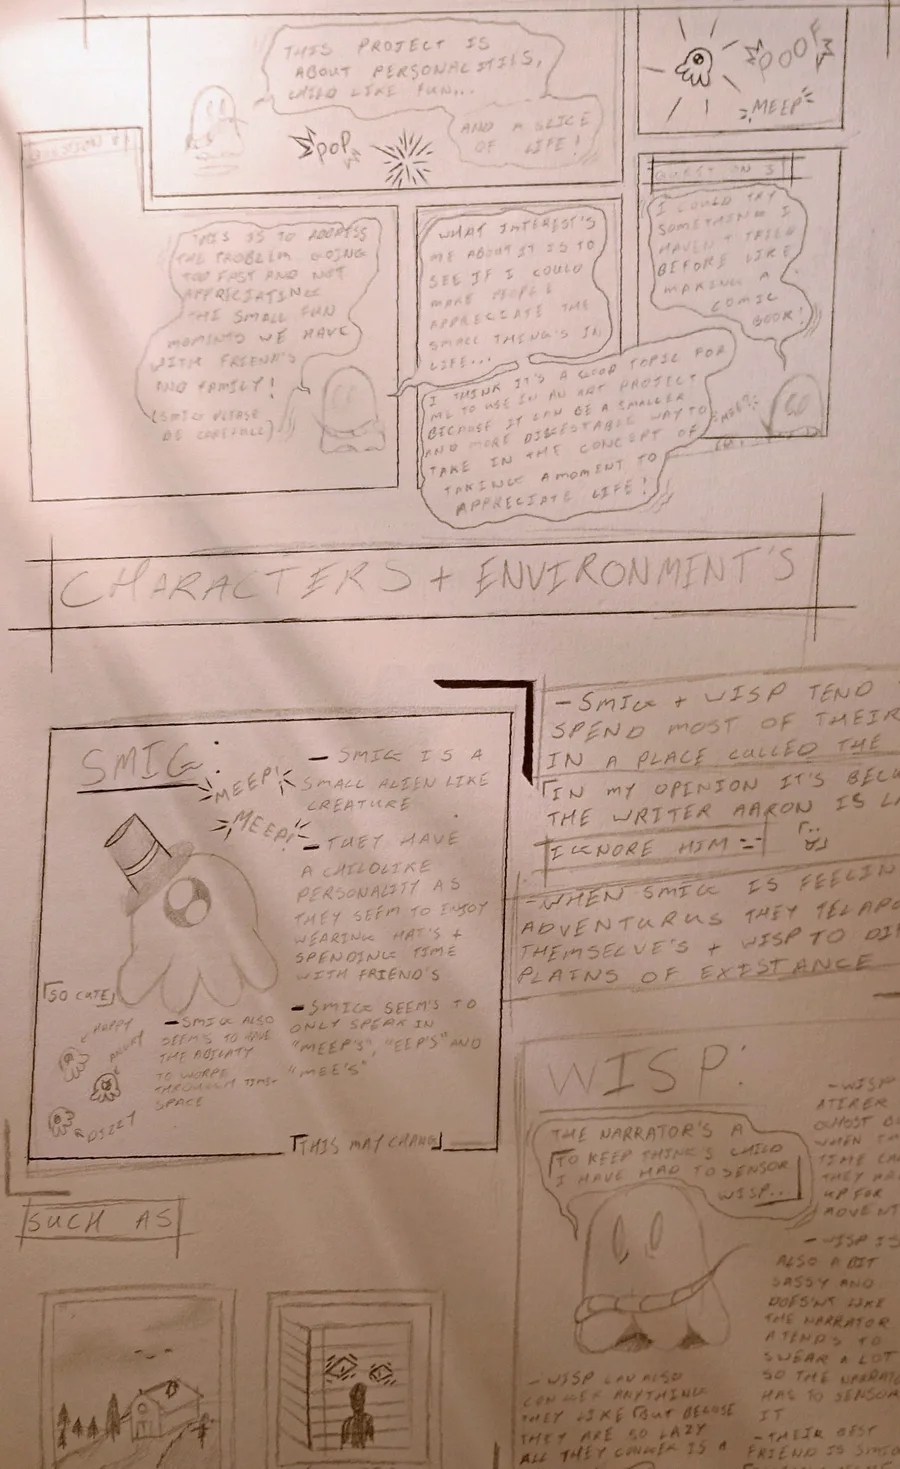 THIS PROJECT IS
ABOUT PERSONALITIES,
CHILD LIKE FUN...
AND A SLICE
OF LIFE!
POP
POOF
MEEP
QUESTION #1
THIS IS TO ADDRESS
THE PROBLEM GOING
TOO FAST AND NOT
APPRECIATING
THE SMALL FUN
MOMENTS WE HAVE
WITH FRIEND'S
AND FAMILY!
(SMIG PLEASE
BE CAREFULL)
WHAT INTEREST'S
ME ABOUT IT IS TO
SEE IF I COULD
MAKE PEOPLE
APPRECIATE THE
SMALL THING'S IN
LIFE...
I THINK IT'S A GOOD TOPIC FOR
ME TO USE IN AN ART PROJECT
BECAUSE IT CAN BE A SMALLER
AND MORE DIGESTABLE WAY TO
TAKE IN THE CONCEPT OF
TAKING A MOMENT TO
APPRECIATE LIFE!
QUESTION 3
I COULD TRY
SOMETHING I
HAVEN'T TRIED
BEFORE LIKE
MAKING A
COMIC
BOOK!
MEEP?
CHARACTERS + ENVIRONMENT'S
SMIG:
MEEP!
MEEP!
- SMIG IS A
SMALL ALIEN LIKE
CREATURE
- THEY HAVE
A CHILDLIKE
PERSONALITY AS
THEY SEEM TO ENJOY
WEARING HAT'S +
SPENDING TIME
WITH FRIEND'S
- SMIG SEEM'S TO
ONLY SPEAK IN
"MEEP'S", "EEP'S" AND
"MEE'S"
SO CUTE
HAPPY
ANGRY
DIZZY
- SMIG ALSO
SEEM'S TO HAVE
THE ABILATY
TO WORPE
THROUGH TIME
SPACE
THIS MAY CHANG
- SMIG + WISP TEND
SPEND MOST OF THEIR
IN A PLACE CULLED THE
IN MY OPINION IT'S BECU
THE WRITER AARON IS LA
IGNORE HIM
- WHEN SMIG IS FEELIN
ADVENTURUS THEY TELAPO
THEMSELVE'S + WISP TO DI
PLAINS OF EXISTANCE
WISP:
THE NARRATOR'S A
TO KEEP THINK'S CHILD
I HAVE HAD TO SENSOR
WISP...
- WISP
ATIRER
OLMOST
WHEN TH
TIME CH
THEY HA
UP FOR
MOVENT
- WISP IS
ALSO A BIT
SASSY AND
DOES'NT LIKE
THE NARRATOR
A TENDS TO
SWEAR A LOT
SO THE NARRAT
HAS TO SENSOR
IT
- THEIR BEST
FRIEND IS SMIG
- WISP CAN ALSO
CONGER ANYTHING
THEY LIKE BUT BECUSE
THEY ARE SO LAZY
ALL THEY CONGER IS A
SUCH AS